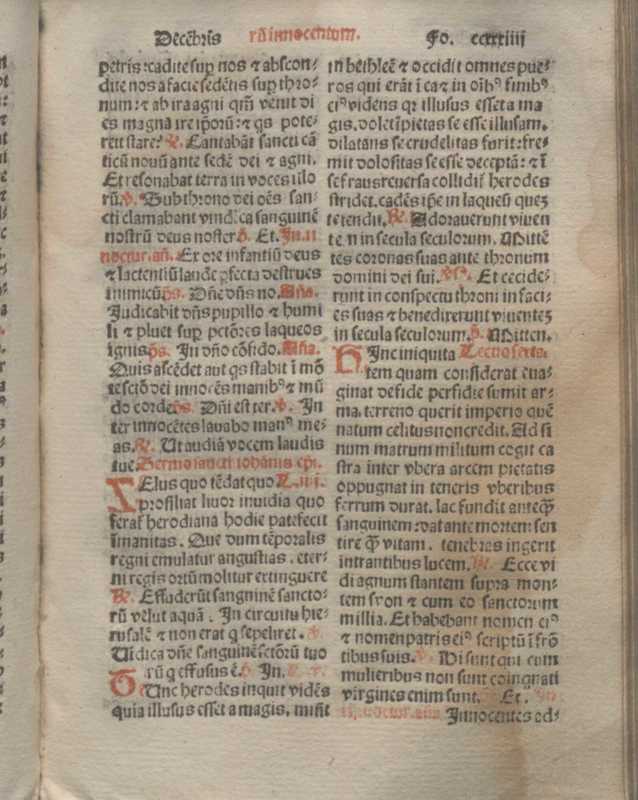 Decẽbris
rũ innocentum.
Fo. ccxxiiij
petris: cadite sup nos ⁊ abscon-
dite nos a facie sedẽtis sup thro-
num: ⁊ ab ira agni qm̃ venit di
es magna ire ip̃orũ: ⁊ q̃s pote-
rit stare? ℟. Cantabãt sancti cã
ticũ nouũ ante sedẽ dei ⁊ agni.
Et resonabat terra in voces illo
rũ. ℣. Sub throno dei oẽs san-
cti clamabant vindica sanguinẽ
nostrũ deus noster ℣. Et. In .ii
noctur. añ. Ex ore infantiũ deus
⁊ lactentiũ laudẽ pfecta destrues
inimicũ ps. Dñe dñs no. Aña.
Iudicabit dñs pupillo ⁊ humi
li ⁊ pluet sup petõres laqueos
ignis ps. In dño cõfido. Aña.
Quis ascẽdet aut qs stabit ĩ mõ
te sctõ dei innocẽs manibꝰ ⁊ mũ
do corde ps. Dñi est ter. ℣. In
ter innocẽtes lauabo manꝰ me-
as. ℟. Ut audiã vocem laudis
tue. Sermo sancti iohanis ep̃i.
ZElus quo tẽdat quo
prosiliat liuor inuidia quo
feraẽ herodiana hodie patefecit
ĩmanitas. Que dum tẽporalis
regni emulatur angustias. eter-
ni regis ortũ molitur extinguere
℟. Effuderũt sangninẽ sancto-
rũ velut aquã. In circuitu hie-
rusalẽ ⁊ non erat q sepeliret. ℣.
Uidica dñe sanguinẽ sctõrũ tuo
rũ q effusus ẽ. ℣. In.
TUnc herodes inquit vidẽs
quia illusus esset a magis. misit
in bethleẽ ⁊ occidit omnes pue-
ros qui erãt ĩ ea ⁊ in oĩbꝰ finibꝰ
eiꝰ videns qr illusus esset a ma
gis. dolet ĩpietas se esse illusam.
dilatans se crudelitas furit: fre-
mit dolositas se esse deceptã: ⁊ ĩ
se fraus reuersa collidit̃ herodes
stridet. cadẽs ip̃e in laqueũ quez
tetendit. ℟. Adorauerunt viuen
te n in secula seculorum. Mittẽ-
tes coronas suas ante thronum
domini dei sui. Et cecide-
runt in conspectu throni in faci-
es suas ⁊ benedixerunt viuentez
in secula seculorum. ℣. Mitten.
HInc iniquita Lectio sexta.
tem quam considerat eua-
ginat defide perfidie sumit ar-
ma. terreno querit imperio quẽ
natum celitus non credit. Ad si
num matrum militum cogit ca
stra inter vbera arcem pietatis
oppugnat in teneris vberibus
ferrum durat. lac fundit anteq̃
sanguinem: dat ante mortem sen
tire q̃ vitam. tenebras ingerit
intrantibus lucem. ℟. Ecce vi
di agnum stantem supra mon-
tem syon ⁊ cum eo sanctorum
millia. Et habebant nomen eiꝰ
⁊ nomen patris eiꝰ scriptũ ĩ frõ
tibus suis. ℣. Hi sunt qui cum
mulieribus non sunt coinquati
virgines enim sunt. Et.
noctur. aña Innocentes ad-